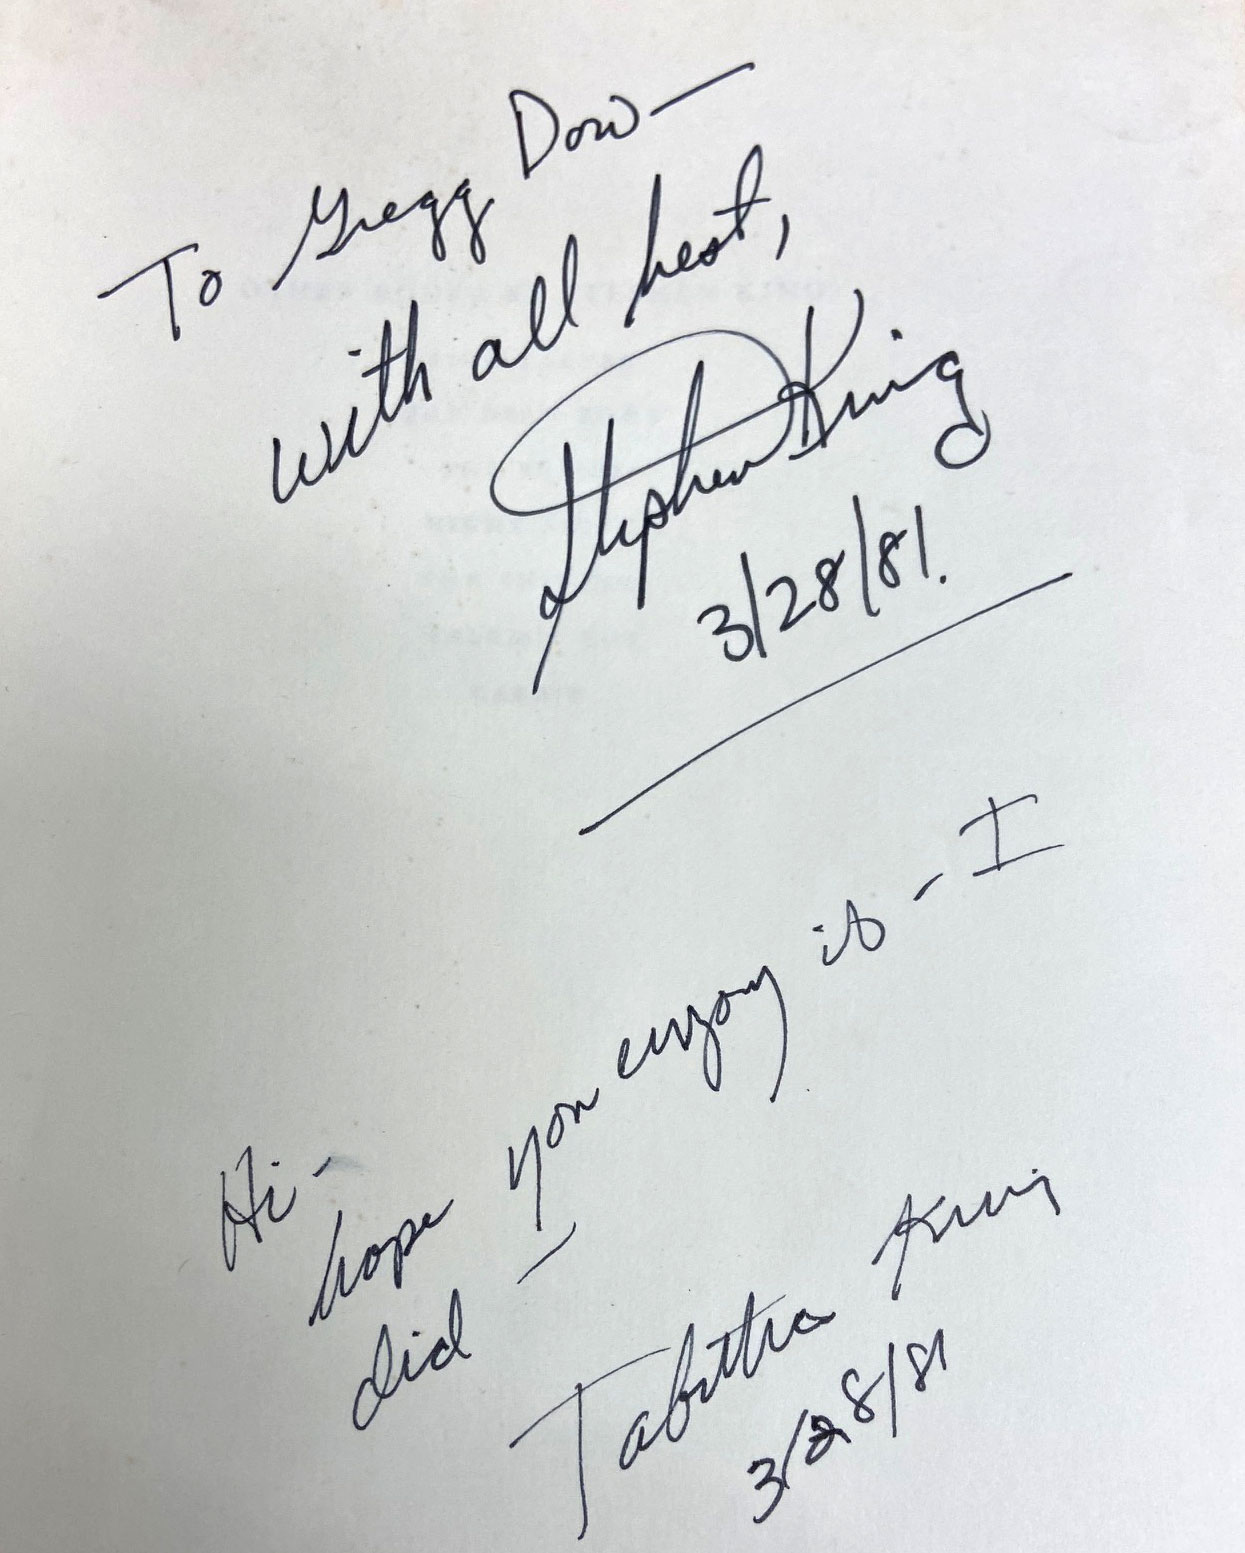 To Gregg Dow —
with all best,
Stephen King
3/28/81.
Hi -
hope you enjoy it - I
did —
Tabitha King
3/28/81